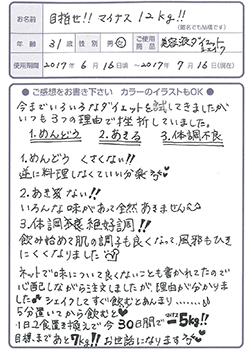 目指せ!! マイナス 12kg!!
(匿名でもOK様です)
年齢 31歳 性別 男・女 ご使用商品 美容液ダイエットシェイク
使用期間 2017年 6月 16日頃 ～ 2017年 7月 16日(現在)
●ご感想をお書き下さい カラーのイラストもOK●
今までいろいろなダイエットを試してきましたが
いつも3つの理由で挫折していました。
1.めんどう 2.あきる 3.体調不良
1.めんどうくさくない!!
逆に料理しなくていい分楽
2.あき ない!!
いろんな味があって全然あきません
3.体調不良 絶好調!!
飲み始めて肌の調子も良くなって、風邪もひき
にくくなりました
ネットで味について良くないことも書かれてたので
心配しながら注文しましたが、理由が分かりまし
た シェイクしてすぐ飲むとあんまり………
5分置いてから飲むと
1日2食置き換えで今30日間で -5kg!!
目標まであと7kg!! お世話になります